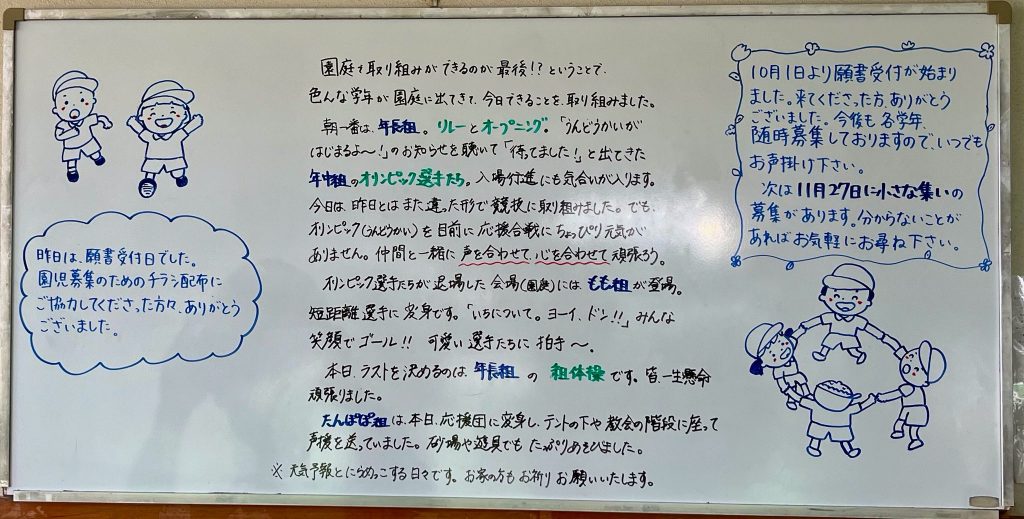 昨日は、願書受付日でした。
園児募集のためのチラシ配布に
ご協力してくださった方々、ありがとう
ございました。
園庭で取り組みができるのが最後!?ということで、
色んな学年が園庭に出てきて、今日できることを、取り組みました。
朝一番は、年長組。リレーとオープニング。「うんどうかいが
はじまるよ〜!」のお知らせを聴いて「待ってました!」と出てきた
年中組のオリンピック選手たち。入場行進にも気合いが入ります。
今日は、昨日とはまた違った形で競技に取り組みました。でも、
オリンピック(うんどうかい)を目前に応援合戦にちょっぴり元気が
ありません。仲間と一緒に声を合わせて、心を合わせて頑張ろう。
オリンピック選手たちが退場した会場(園庭)には、もも組が登場。
短距離選手に変身です。「いちについて。ヨーイ、ドン!!」みんな
笑顔でゴール!! 可愛い選手たちに拍手〜。
本日、ラストを決めるのは、年長組の組体操です。皆、一生懸命
頑張りました。
たんぽぽ組は、本日、応援団に変身し、テントの下や教会の階段に座って
声援を送っていました。砂場や遊具でもたっぷりあそびました。
※天気予報とにらめっこする日々です。お家の方もお祈りお願いいたします。
10月1日より願書受付が始まり
ました。来てくださった方、ありがとう
ございました。今後も各学年、
随時募集しておりますので、いつでも
お声掛け下さい。
次は11月27日に小さな集いの
募集があります。分からないことが
あればお気軽にお尋ね下さい。